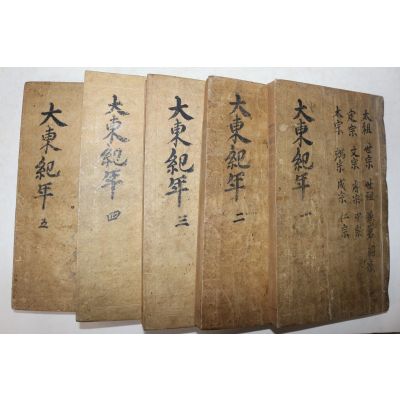 太祖 世宗 世祖
定宗 文宗 睿宗 中宗
太宗 端宗 成宗 仁宗
大東紀年 一
大東紀年 二
大東紀年 三
大東紀年 四
大東紀年 五